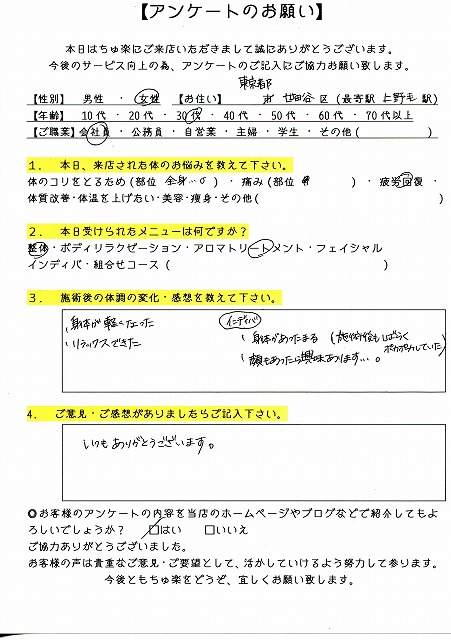 【アンケートのお願い】
本日はちゅ楽にご来店いただきまして誠にありがとうございます。
今後のサービス向上の為、アンケートのご記入にご協力お願い致します。
東京都
【性別】 男性 ・ 女性 【お住い】 市 世田谷 区 (最寄駅 上野毛 駅)
【年齢】 10代 ・ 20代 ・ 30代 ・ 40代 ・ 50代 ・ 60代 ・ 70代以上
【ご職業】会社員 ・ 公務員 ・ 自営業 ・ 主婦 ・ 学生 ・ その他( )
1. 本日、来店された体のお悩みを教えて下さい。
体のコリをとるため(部位 全身…。) ・ 痛み(部位 ) ・ 疲労回復 ・
体質改善・体温を上げたい・美容・痩身・その他( )
2. 本日受けられたメニューは何ですか?
整体・ボディリラクゼーション・アロマトリートメント・フェイシャル
インディバ・組合せコース( )
3. 施術後の体調の変化・感想を教えて下さい。
、身体が軽くなった
、リラックスできた
インディバ
、身体があったまる (施術後もしばらく
ポカポカしていた)
、顔もあったら興味あります…。
4. ご意見・ご感想がありましたらご記入下さい。
いつもありがとうございます。
○お客様のアンケートの内容を当店のホームページやブログなどで紹介してもよ
ろしいでしょうか? □はい □いいえ
ご協力ありがとうございました。
お客様の声は貴重なご意見・ご要望として、活かしていけるよう努力して参ります。
今後ともちゅ楽をどうぞ、宜しくお願い致します。